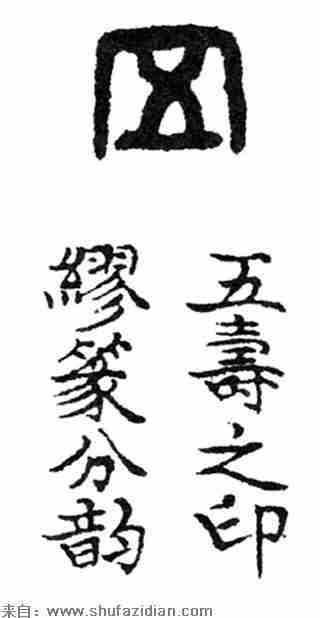 五
五壽之印
繆篆分韵
来自：www.shufazidian.com